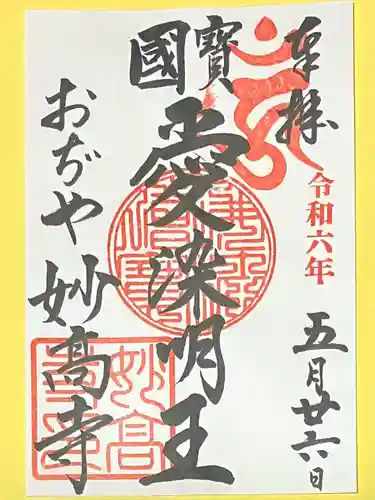 奉拝
令和六年
五月廿六日
國寳
愛染明王
おぢや妙高寺
妙高